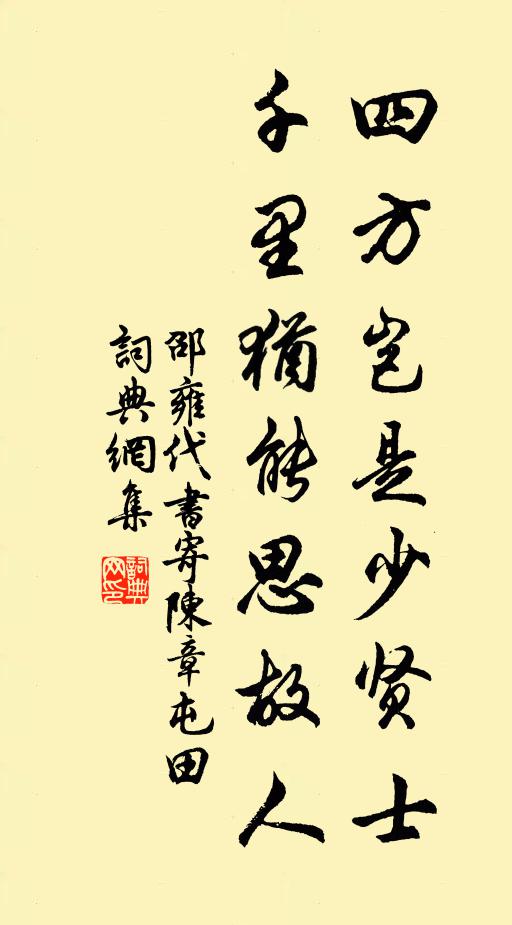 四方岂是少贤士
千里猶能思故人
邵雍代書寄陳章屯田
詞典網集
詞典网印